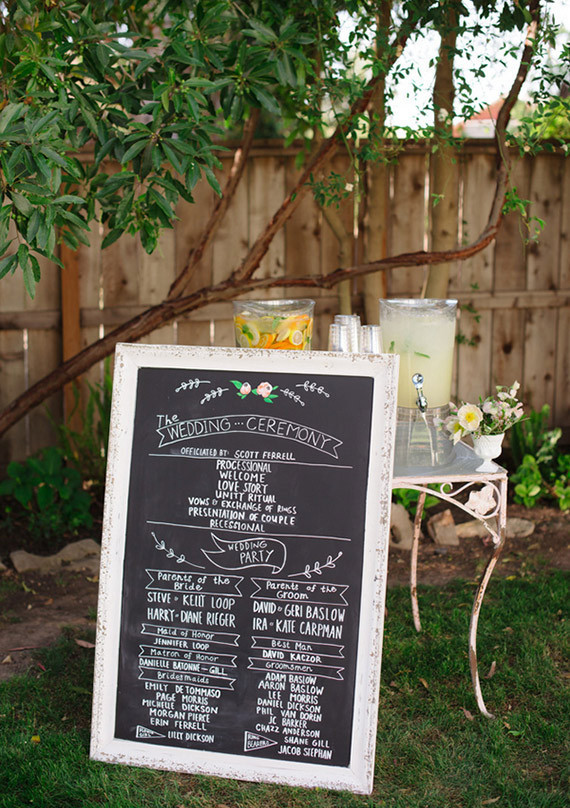 The
WEDDING ... CEREMONY
OFFICIATED BY SCOTT FERRELL
PROCESSIONAL
WELCOME
LOVE STORY
UNITY RITUAL
VOWS & EXCHANGE OF RINGS
PRESENTATION OF COUPLE
RECESSIONAL
WEDDING
PARTY
Parents of the
Bride
STEVE & KELLI LOOP
HARRY & DIANE RIEGER
Maid of Honor
JENNIFER LOOP
Matron of Honor
DANIELLE BATONNE - GILL
Bridesmaids
EMILY DETOMMASO
PAGE MORRIS
MICHELLE DICKSON
MORGAN PIERCE
ERIN FERRELL
LILLY DICKSON
Parents of the
Groom
DAVID & GERI BASLOW
IRA & KATE CARPMAN
Best Man
DAVID KACZOR
Groomsmen
ADAM BASLOW
AARON BASLOW
LEE MORRIS
DANIEL DICKSON
PHIL VAN DOREN
JC BARKER
CHAZZ ANDERSON
SHANE GILL
JACOB STEPHAN